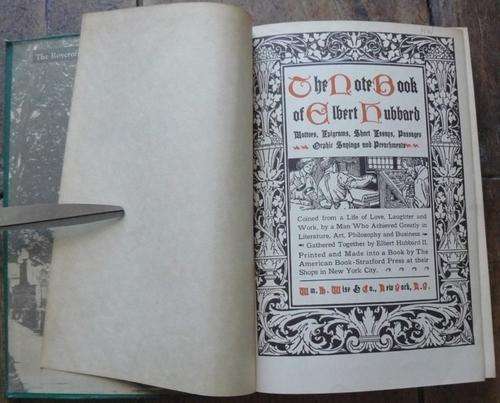 The Roycrof
The Note Book
of Elbert Hubbard
Mottoes, Epigrams, Short Essays, Passages
Orphic Sayings and Preachments
Coined from a Life of Love, Laughter and
Work, by a Man Who Achieved Greatly in
Literature, Art, Philosophy and Business
Gathered Together by Elbert Hubbard II.
Printed and Made into a Book by The
American Book-Stratford Press at their
Shops in New York City.
Wm. H. Wise & Co., New York, N.Y.